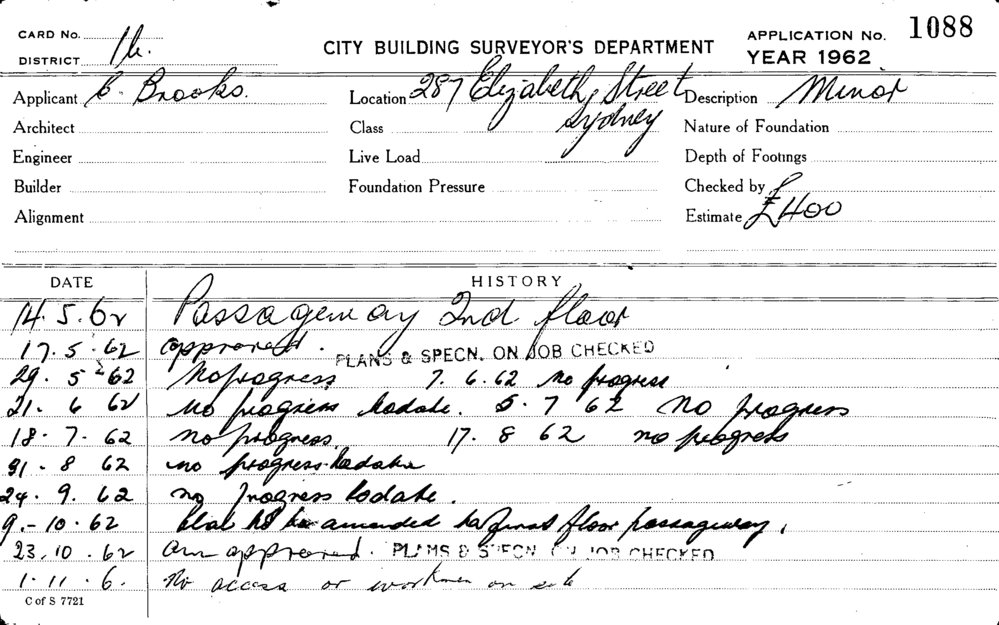 CARD No.
DISTRICT 1b.
CITY BUILDING SURVEYOR'S DEPARTMENT
APPLICATION No. 1088
YEAR 1962
Applicant C. Brooks.
Location 287 Elizabeth Street
Sydney
Description Minor
Architect
Class
Nature of Foundation
Engineer
Live Load
Depth of Footings
Builder
Foundation Pressure
Checked by
Alignment
Estimate £400
DATE HISTORY
14.5.62 Passageway 2nd floor
17.5.62 approved. PLANS & SPECN. ON JOB CHECKED
29.5.62 No progress 7.6.62 no progress
21.6 62 no progress todate. 5.7 62 no progress
18.7.62 no progress. 17.8 62 no progress
31.8 62 no progress todate
24.9.62 no progress todate.
9.-10.62 to be amended to first floor passageway.
23.10.62 am approved. PLANS & SPECN ON JOB CHECKED
1.11.6. No access or workmen on
C of S 7721